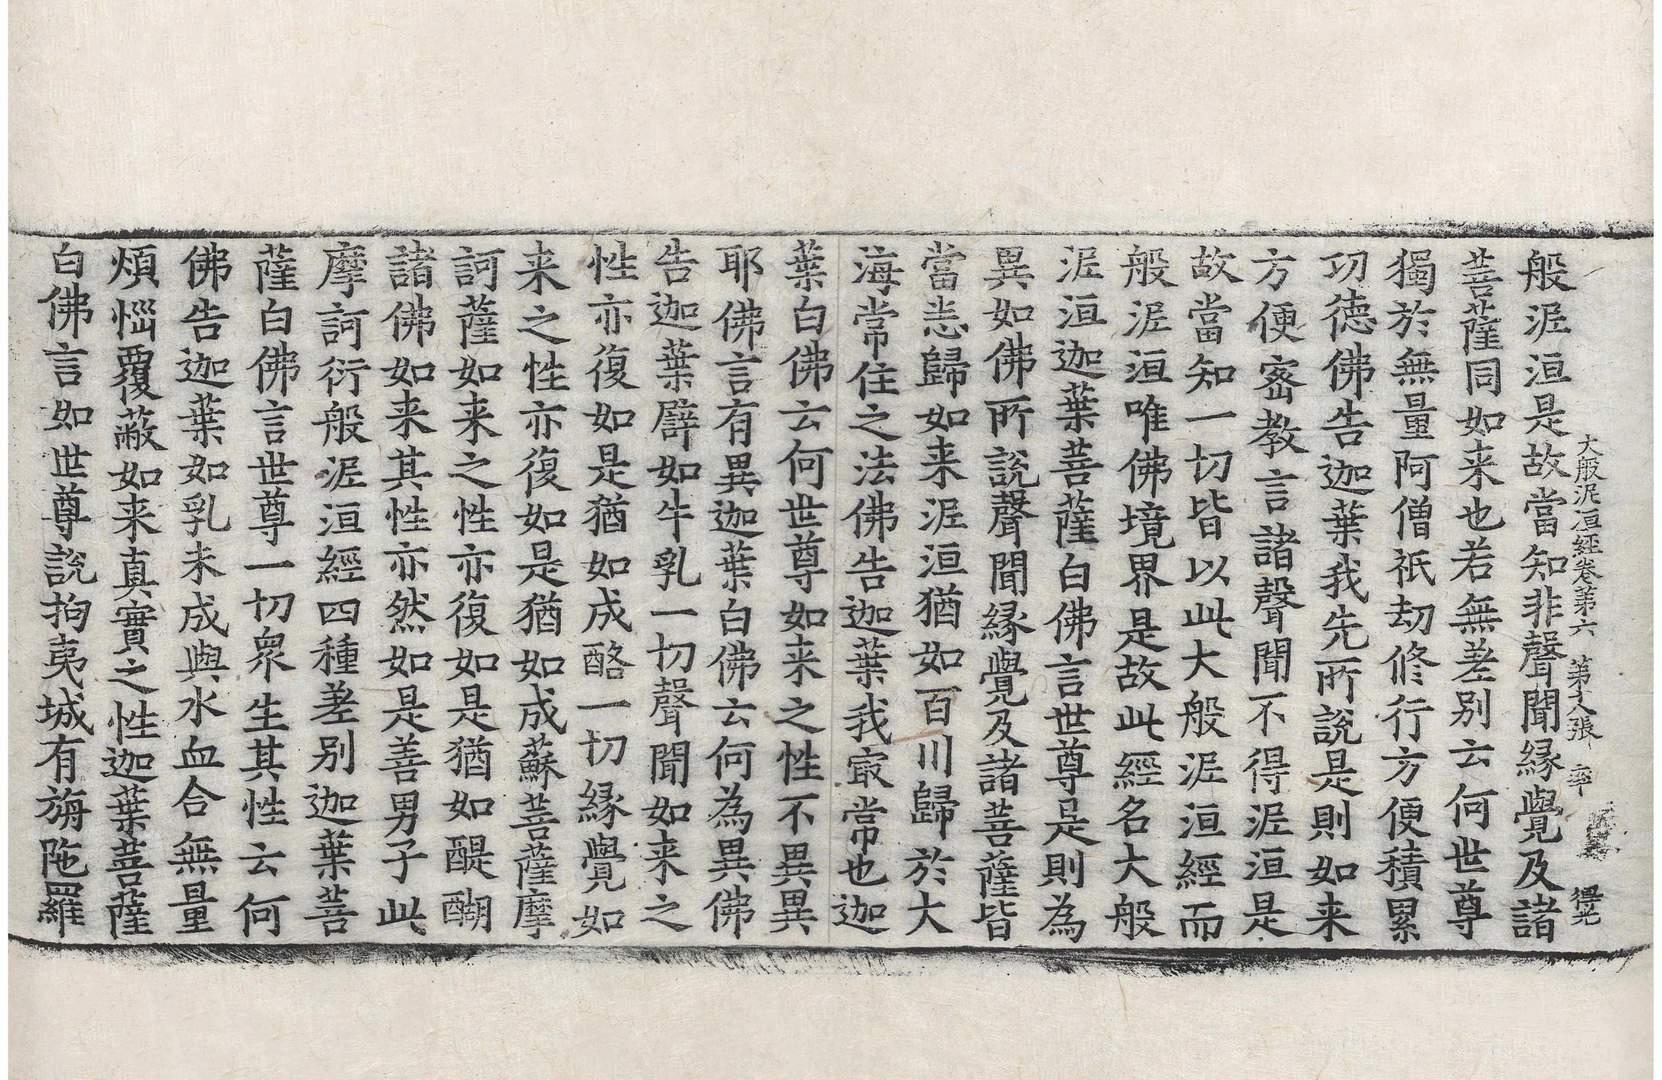 大般泥洹經卷第六 第十八張 率 得光
般泥洹是故當知非聲聞緣覺及諸
菩薩同如来也若無差別云何世尊
獨於無量阿僧祇劫修行方便積累
功德佛告迦葉我先所說是則如来
方便密教言諸聲聞不得泥洹是
故當知一切皆以此大般泥洹經而
般泥洹唯佛境界是故此經名大般
泥洹迦葉菩薩白佛言世尊是則為
異如佛所說聲聞緣覺及諸菩薩皆
當悉歸如来泥洹猶如百川歸於大
海常住之法佛告迦葉我㝡常也迦
葉白佛云何世尊如来之性不異異
耶佛言有異迦葉白佛云何為異佛
告迦葉譬如牛乳一切聲聞如来之
性亦復如是猶如成酪一切緣覺如
来之性亦復如是猶如成蘇菩薩摩
訶薩如来之性亦復如是猶如醍醐
諸佛如来其性亦然如是善男子此
摩訶衍般泥洹經四種差別迦葉菩
薩白佛言世尊一切眾生其性云何
佛告迦葉如乳未成與水血合無量
煩惱覆蔽如来真實之性迦葉菩薩
白佛言如世尊說拘夷城有旃陁羅